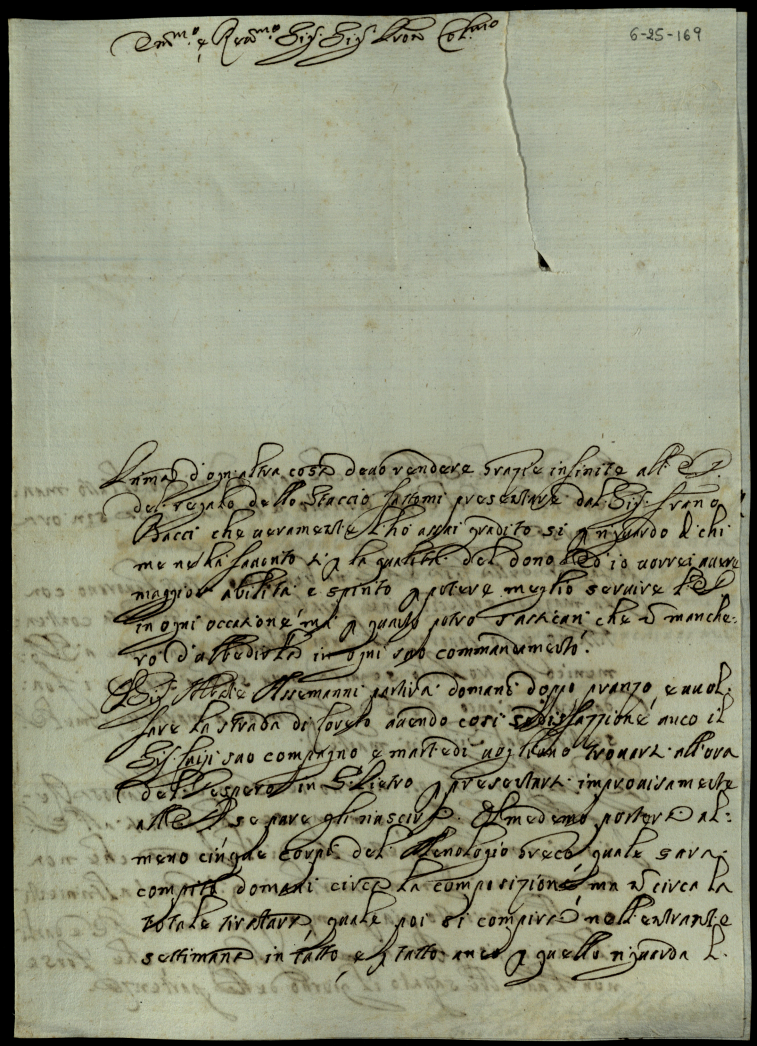 Em.mo e Rev.mo Sig. Sig. Pron Col.mo
6-25-169
Prima d'ogn'altra cosa devo rendere grazie infinite all' E. V.
del regalo dello Staccio fattomi presentare dal Sig. Franco
Bacci che veramente l'ho assai gradito si p riguardo di chi
me ne ha favorito si p la qualità del dono ed io vorrei avere
maggior abilità e spirito p potere meglio servire l'E V
in ogni occazione ma p quanto potro s'assicuri che n manche-
rò d'obbedirla in ogni suo commandamento.
Il Sig. Abbate Assemanni partirà domani doppo pranzo, e vuol
fare la strada di Loreto avendo cosi sodisfazzione anco il
Sig. Luigi suo compagno e martedi vogliano trovarsi all'ora
del Vespero in S. Pietro p presentarsi improvisamente
all' E V se pure gli riuscirà. Il medemo porterà al-
meno cinque corpi del Menologio Greco quale sara
compito domani circa la composizione ma n circa la
totale tiratura, quale poi si compirà nell'entrante
settimana in tutto e p tutto anco p quello riguarda l'